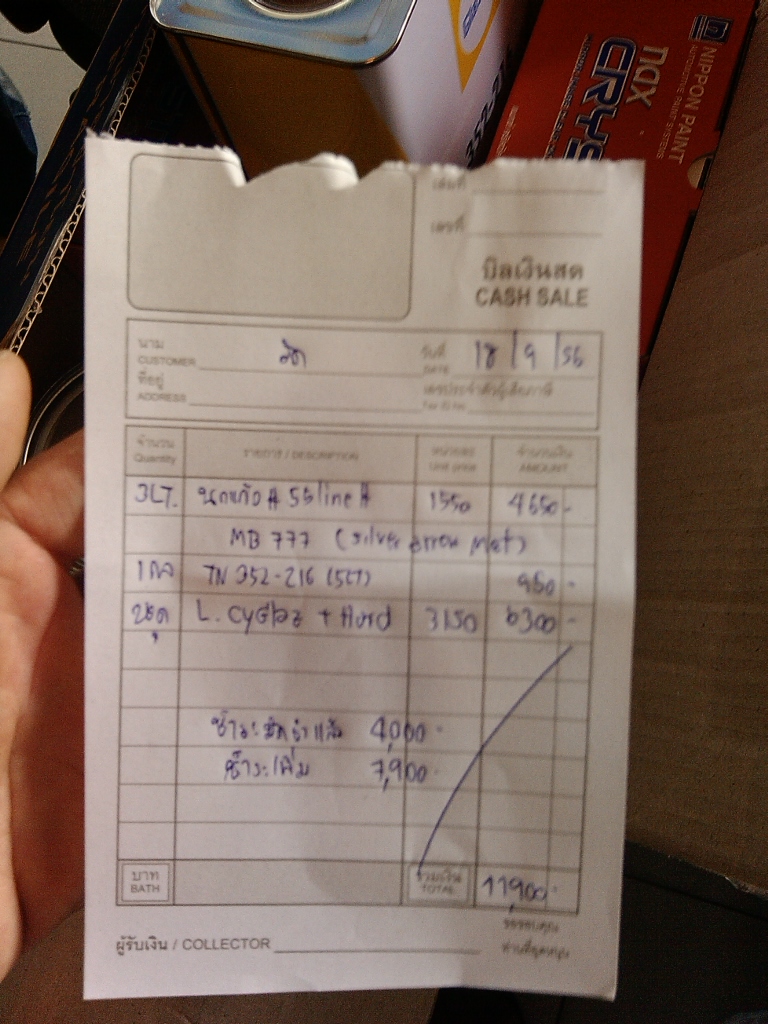 NIPPON PAINT
AUTOMOTIVE PAINT SYSTEMS
nax
CRYS
เล่มที่
เลขที่
บิลเงินสด
CASH SALE
นาม
CUSTOMER
วันที่ 18/9/56
DATE
ที่อยู่
ADDRESS
เลขประจำตัวผู้เสียภาษี
จำนวน รายการ / DESCRIPTION หน่วยละ จำนวนเงิน
Quantity Unit price AMOUNT
3LT. นกแก้ว # 55line # 1550 4650-
MB 777 (silver arrow Mat)
1กล TN 352-216 (5LT) 950-
2ชุด L. + Hard 3150 6300-
ชำระมัดจำแล้ว 4,000-
ชำระเพิ่ม 7,900-
บาท รวมเงิน 11,900-
BATH TOTAL
ขอขอบคุณ
ผู้รับเงิน / COLLECTOR ท่านที่อุดหนุน